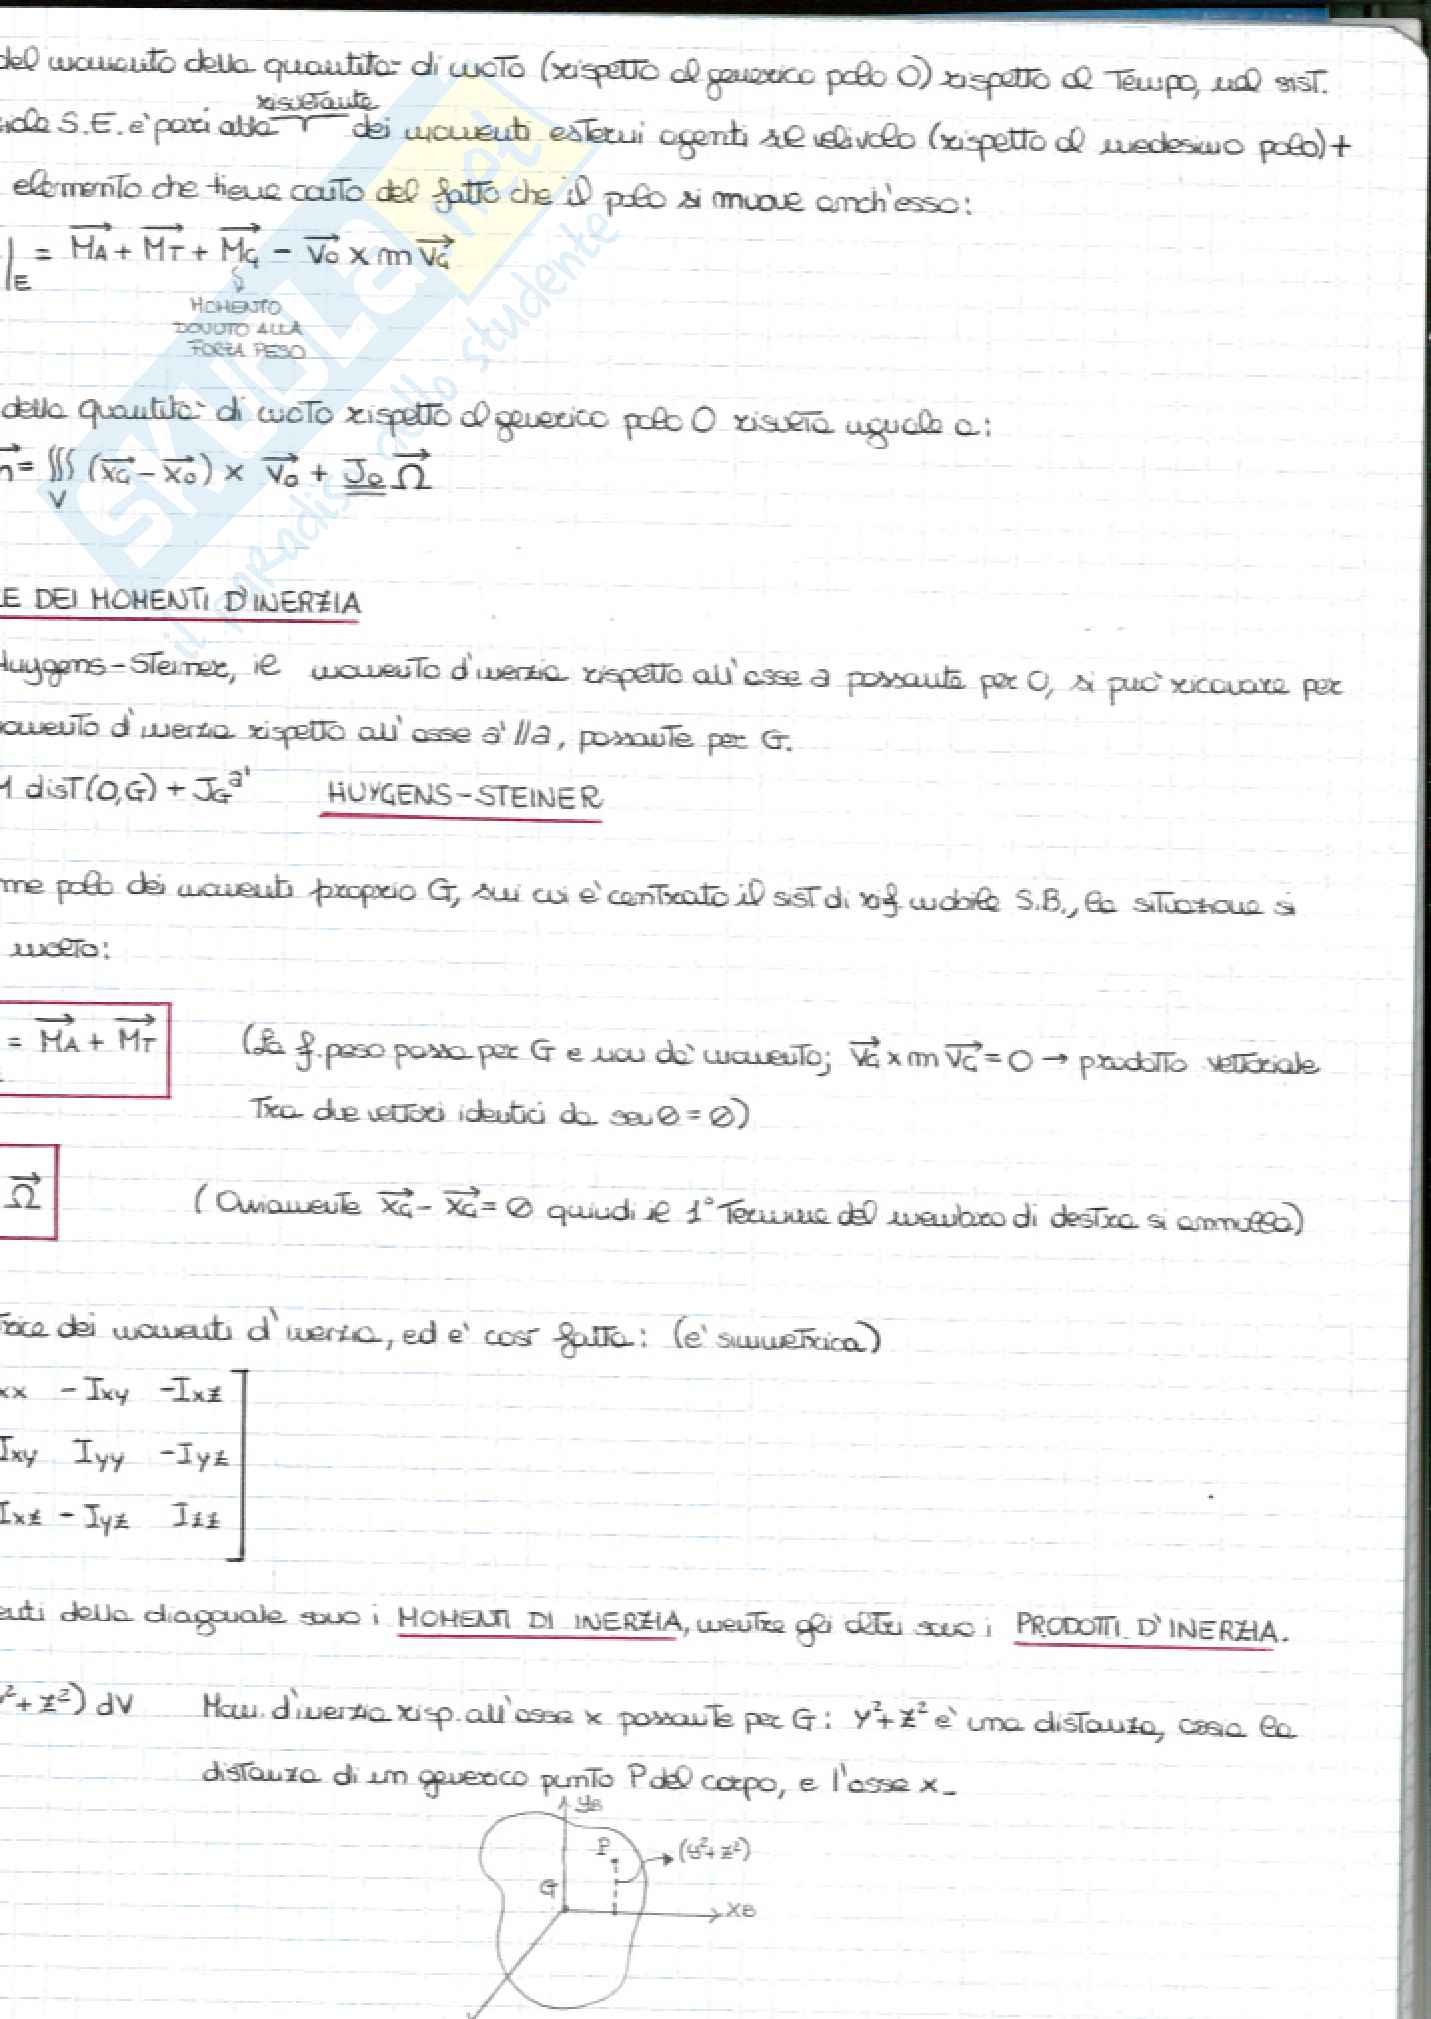 del momento della quantità di moto (rispetto al generico polo O) rispetto al tempo, nel sist.
risultante
S.E. è pari alla dei momenti esterni agenti sul velivolo (rispetto al medesimo polo) +
elemento che tiene conto del fatto che il polo si muove anch'esso:
|E = MA + MT + MG - V0 x m VG
MOMENTO
DOVUTO ALLA
FORZA PESO
della quantità di moto rispetto al generico polo O risulta uguale a:
= ∭V (xG - xO) x V0 + JO Ω
E DEI MOMENTI D'INERZIA
Huygens-Steiner, il momento d'inerzia rispetto all'asse a passante per O, si può ricavare per
momento d'inerzia rispetto all'asse a' // a, passante per G.
M dist(O,G) + JG^a' HUYGENS-STEINER
me polo dei momenti proprio G, sui cui è centrato il sist di rif mobile S.B., la situazione si
molto:
= MA + MT (La f. peso passa per G e non dà momento; VG x m VG = 0 → prodotto vettoriale
Tra due vettori identici dà sen 0 = 0)
Ω (Ovviamente xG - xG = 0 quindi il 1° Termine del membro di destra si annulla)
rice dei momenti d'inerzia, ed è così fatta: (è simmetrica)
xx - Ixy - Ixz
Ixy Iyy - Iyz
Ixz - Iyz Izz
enti della diagonale sono i MOMENTI DI INERZIA, mentre gli altri sono i PRODOTTI D'INERZIA.
y²+z²) dV Mom. d'inerzia risp. all'asse x passante per G: y²+z² è una distanza, ossia la
distanza di un generico punto P del corpo, e l'asse x.
yB
P (y²+z²)
G
xB
SKUOLA.net
il paradiso dello studente